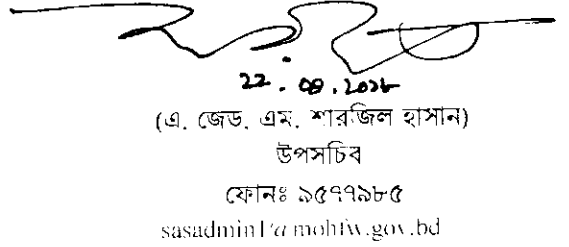 (এ. জেড. এম. শারজিল হাসান)
উপসচিব
ফোনঃ ৯৫৭৭৯৮৫
sasadmin1@mohfw.gov.bd